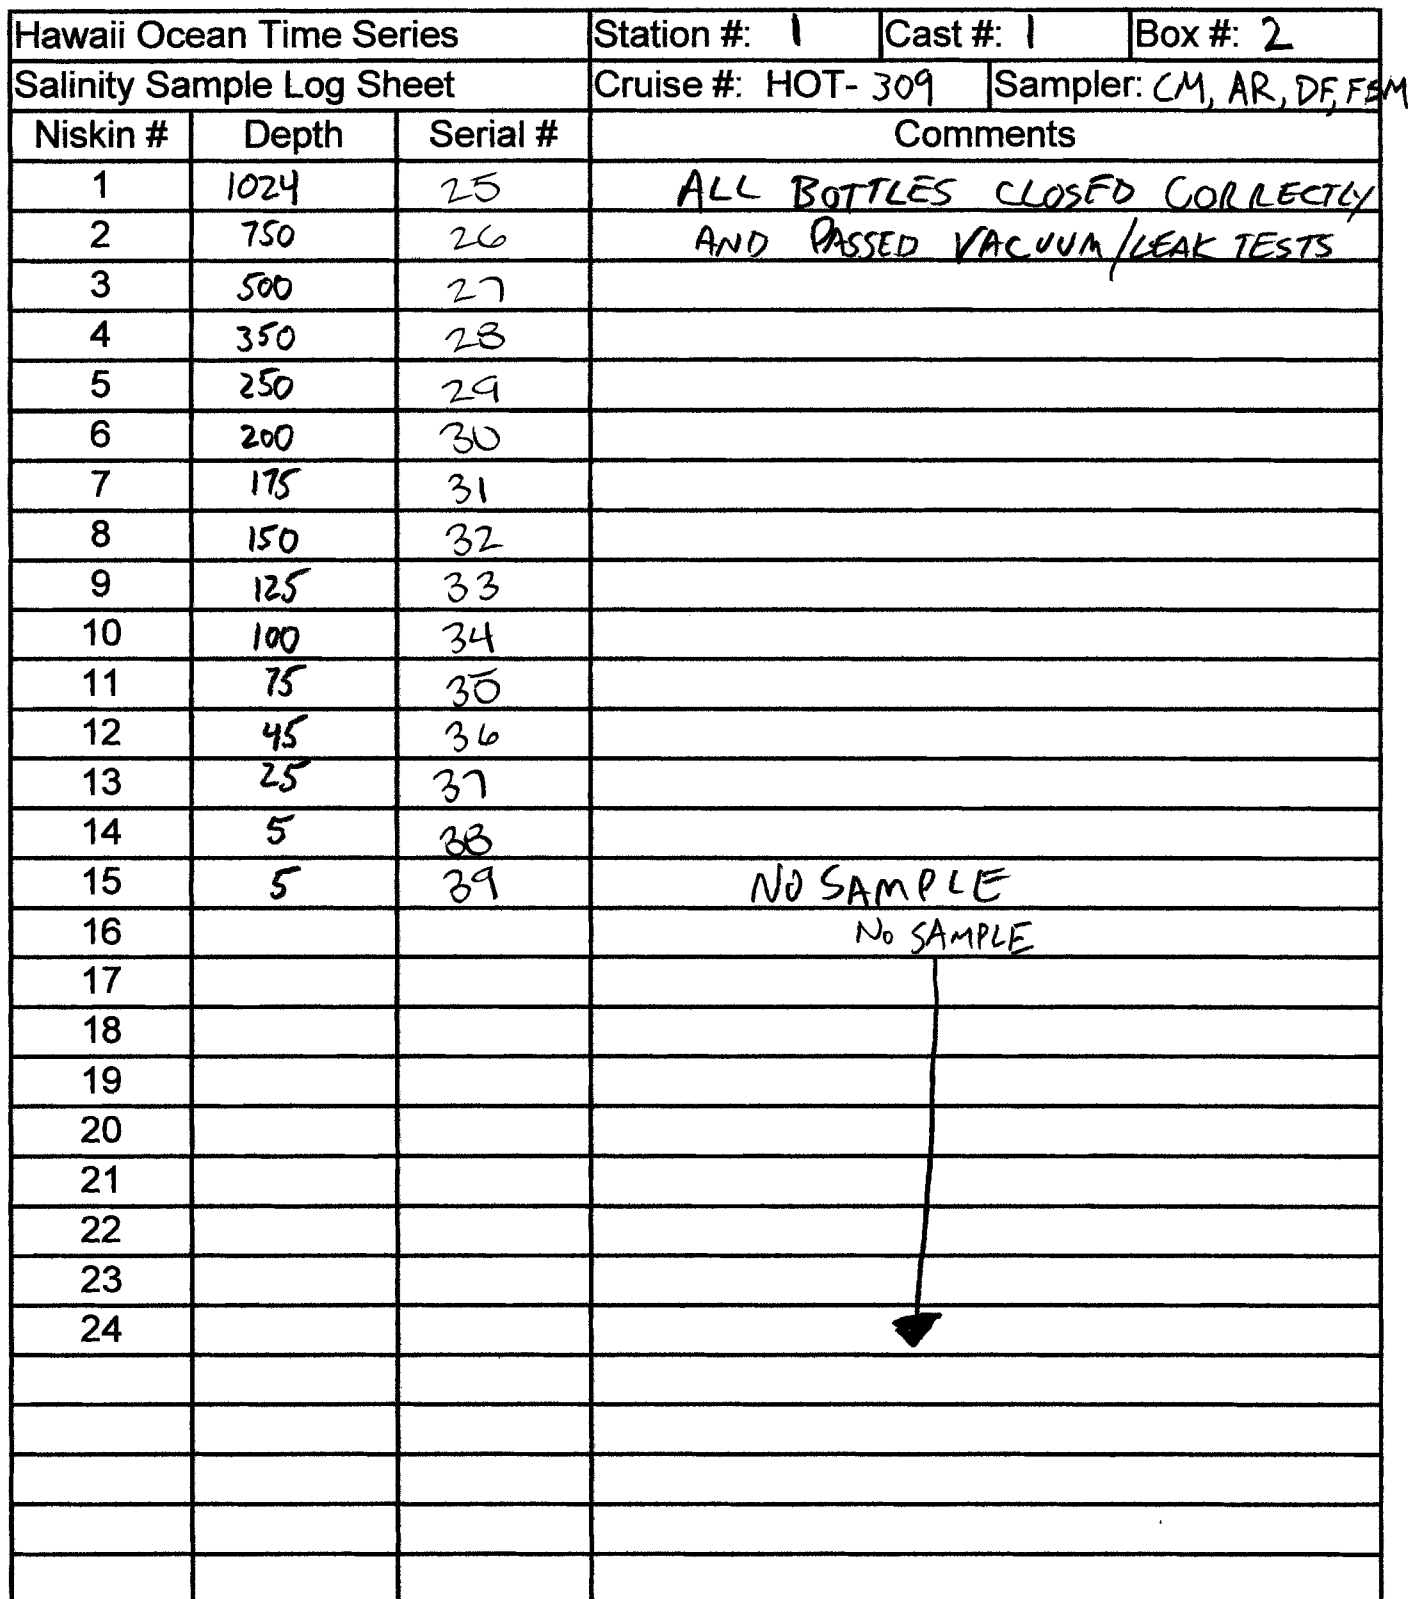 Hawaii Ocean Time Series Station #: 1 Cast #: 1 Box #: 2
Salinity Sample Log Sheet Cruise #: HOT- 309 Sampler: CM, AR, DF, FSM
Niskin # Depth Serial # Comments
1 1024 25 ALL BOTTLES CLOSED CORRECTLY
2 750 26 AND PASSED VACUUM/LEAK TESTS
3 500 27
4 350 28
5 250 29
6 200 30
7 175 31
8 150 32
9 125 33
10 100 34
11 75 35
12 45 36
13 25 37
14 5 38
15 5 39 NO SAMPLE
16 No SAMPLE
17
18
19
20
21
22
23
24